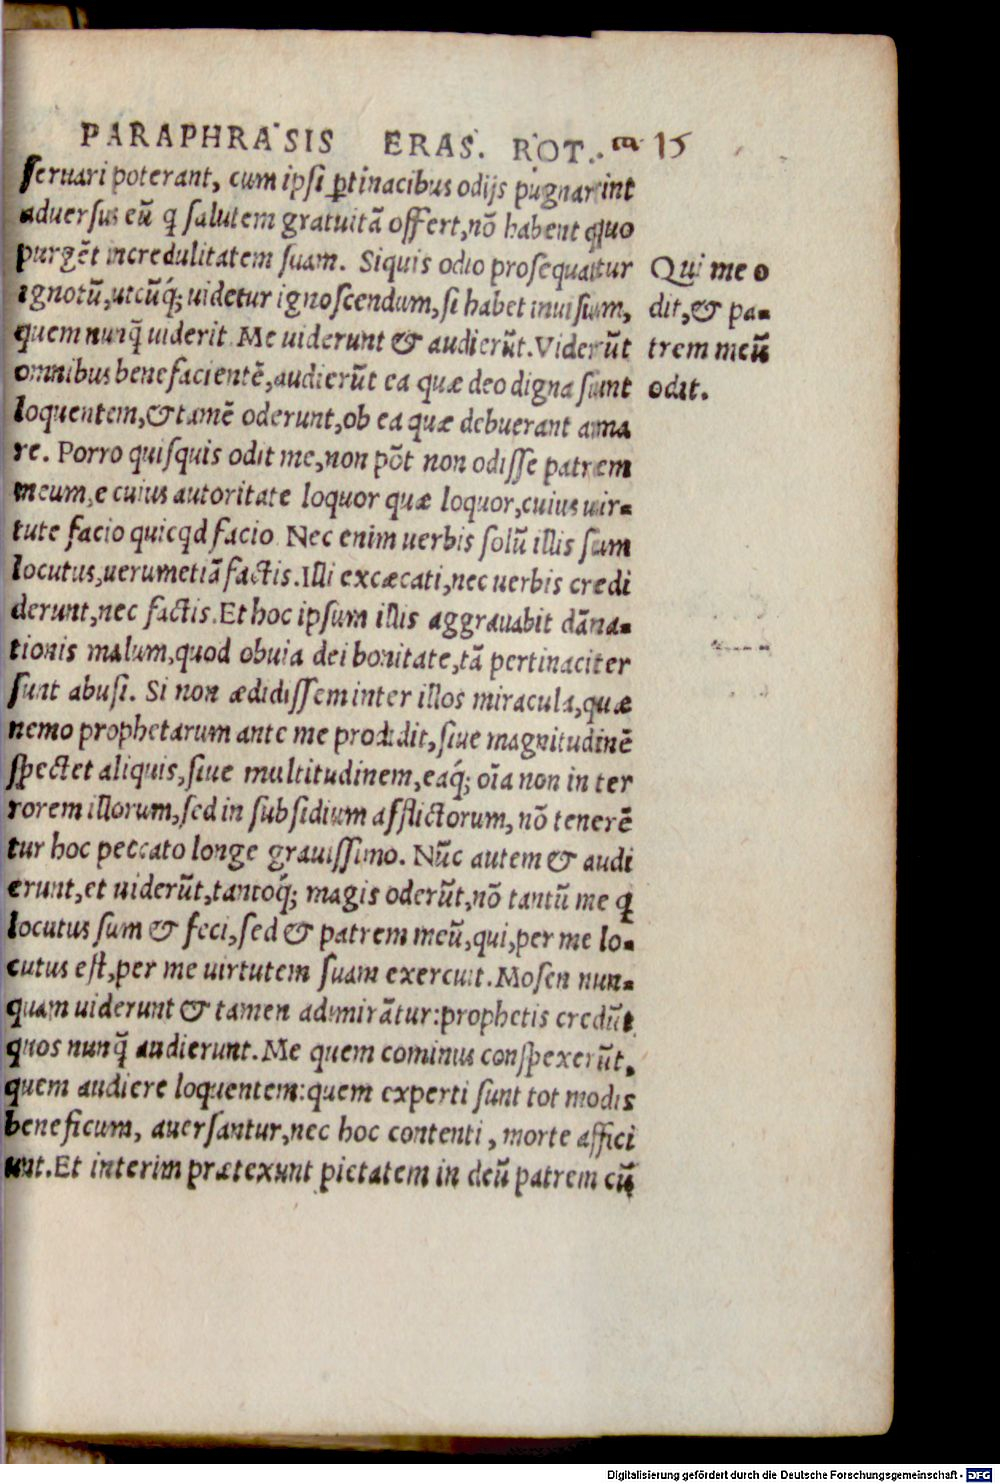 PARAPHRASIS ERAS. ROT. ca 15
seruari poterant, cum ipsi ꝑtinacibus odijs pugnarint
aduersus eũ q salutem gratuitã offert, nõ habent quo
purgẽt incredulitatem suam. Siquis odio prosequatur
ignotũ, utcũq́; uidetur ignoscendum, si habet inuisum,
quem nunq̃ uiderit. Me uiderunt & audierũt. Viderũt
omnibus benefacientẽ, audierũt ea quæ deo digna sunt
loquentem, & tamẽ oderunt, ob ea quæ debuerant ama
re. Porro quisquis odit me, non põt non odisse patrem
meum, e cuius autoritate loquor quæ loquor, cuius uir-
tute facio quicqd facio. Nec enim uerbis solũ illis sum
locutus, uerumetiã factis. Illi excæcati, nec uerbis credi
derunt, nec factis. Et hoc ipsum illis aggrauabit dãna-
tionis malum, quod obuia dei bonitate, tã pertinaciter
sunt abusi. Si non ædidissem inter illos miracula, quæ
nemo prophetarum ante me prodidit, siue magnitudinẽ
spectet aliquis, siue multitudinem, eaq́; oĩa non in ter
rorem illorum, sed in subsidium afflictorum, nõ tenerẽ
tur hoc peccato longe grauissimo. Nũc autem & audi
erunt, et uiderũt, tantoq́; magis oderũt, nõ tantũ me q
locutus sum & feci, sed & patrem meũ, qui, per me lo-
cutus est, per me uirtutem suam exercuit. Mosen nun-
quam uiderunt & tamen admirãtur: prophetis credũt
quos nunq̃ audierunt. Me quem cominus conspexerũt,
quem audiere loquentem: quem experti sunt tot modis
beneficum, auersantur, nec hoc contenti, morte affici
unt. Et interim prætexunt pietatem in deũ patrem cũ
Qui me o
dit, & pa-
trem meũ
odit.
Digitalisierung gefördert durch die Deutsche Forschungsgemeinschaft - DFG